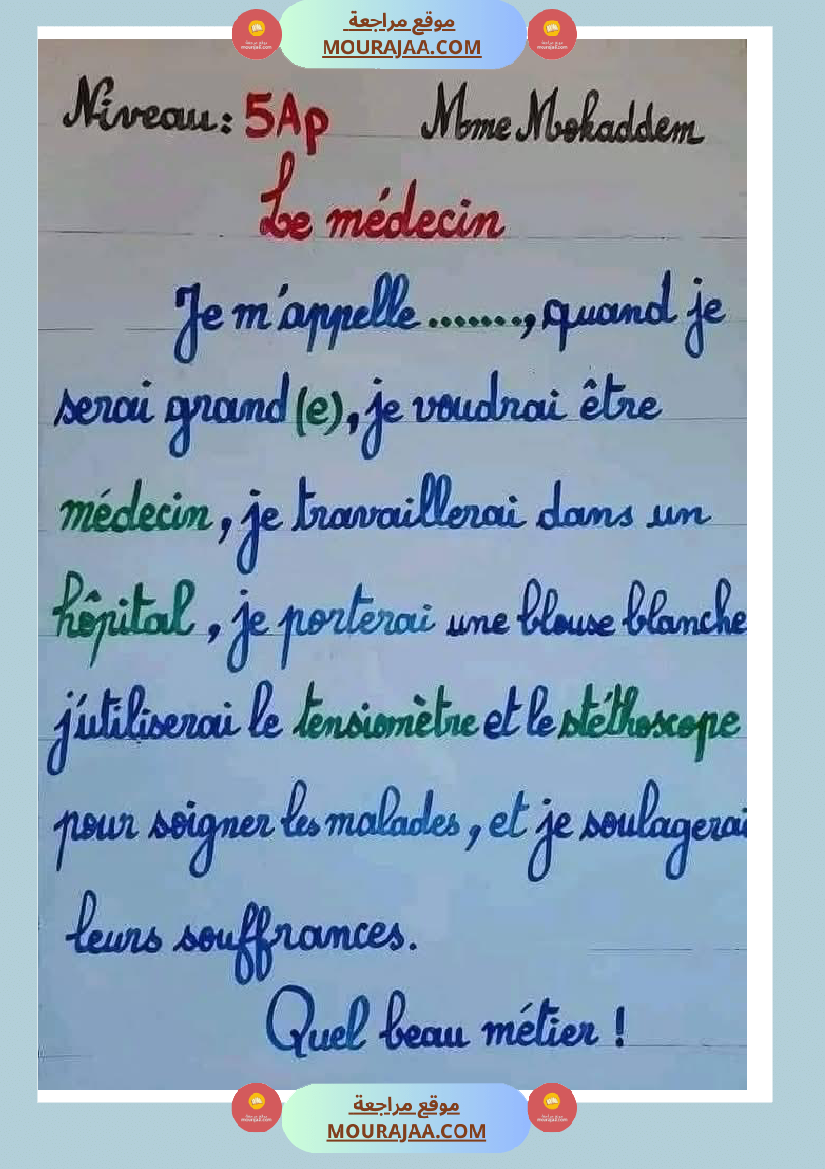 موقع مراجعة
MOURAJAA.COM
Niveau: 5Ap Mme Mokaddem
Le médecin
Je m'appelle ........, quand je
serai grand (e), je voudrai être
médecin, je travaillerai dans un
hôpital, je porterai une blouse blanche
j'utiliserai le tensiomètre et le stéthoscope
pour soigner les malades, et je soulagerai
leurs souffrances.
Quel beau métier !
موقع مراجعة
MOURAJAA.COM